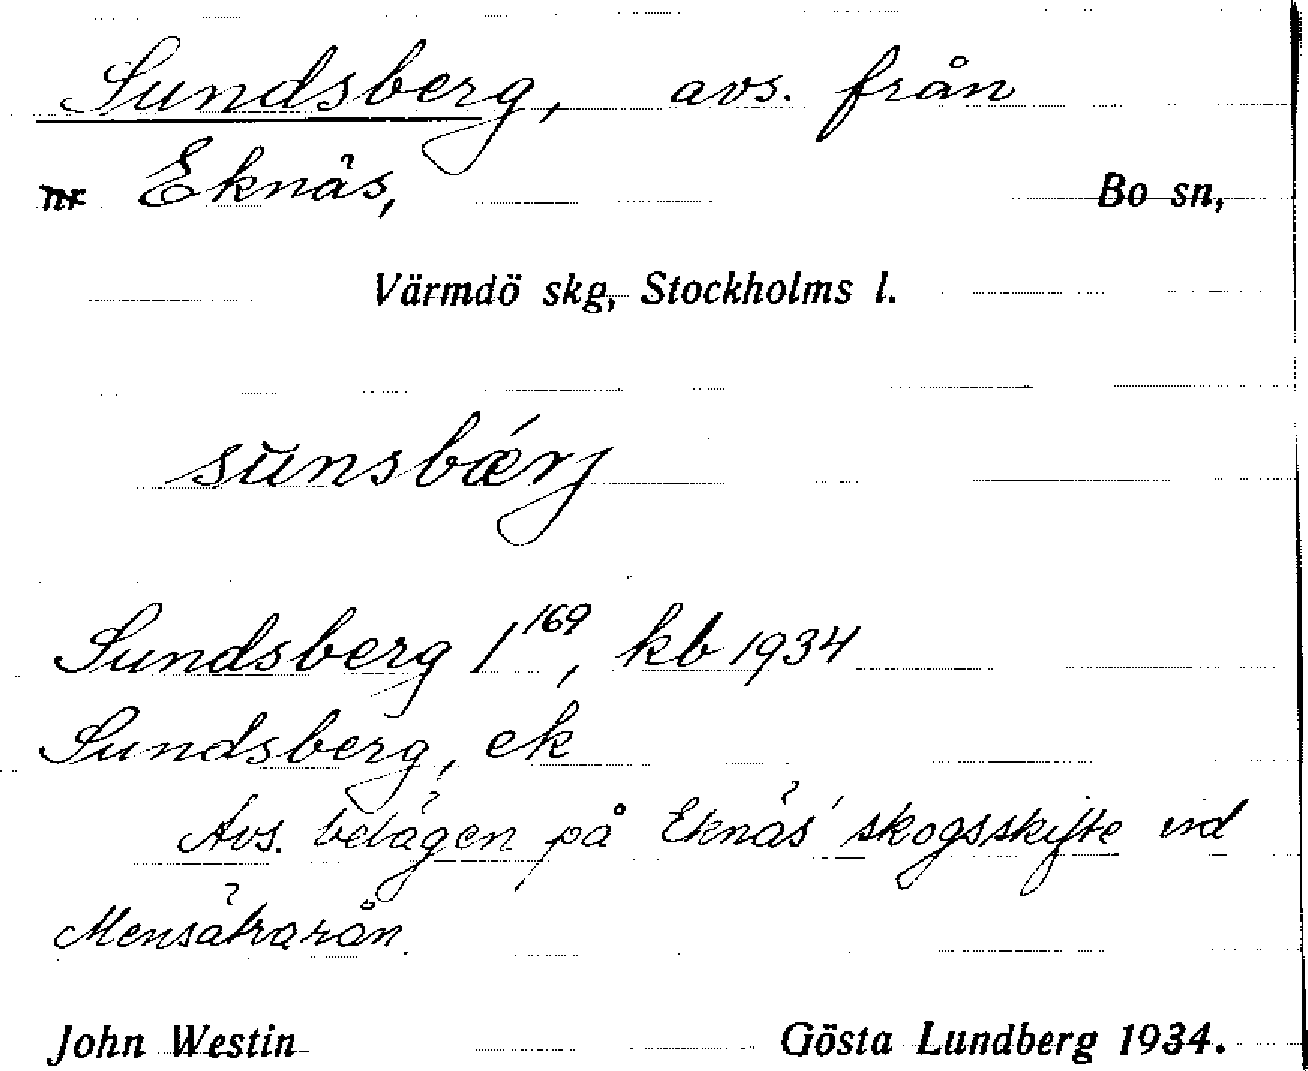 Sundsberg, avs. från
nr Eknäs, Bo sn,
Värmdö skg, Stockholms l.
sunsbǽrj
Sundsberg 1¹⁶⁹, kb 1934
Sundsberg, ek
Avs. belägen på Eknäs' skogsskifte vid
Mensätraån.
John Westin Gösta Lundberg 1934.